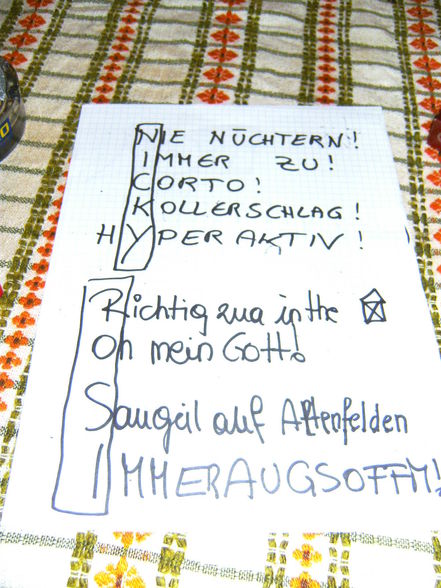 NIE NÜCHTERN!
IMMER ZU!
CORTO!
KOLLERSCHLAG!
HYPERAKTIV!
Richtig zua in the
Oh mein Gott!
Saugeil auf Altenfelden
IMMERAUGSOFFM!